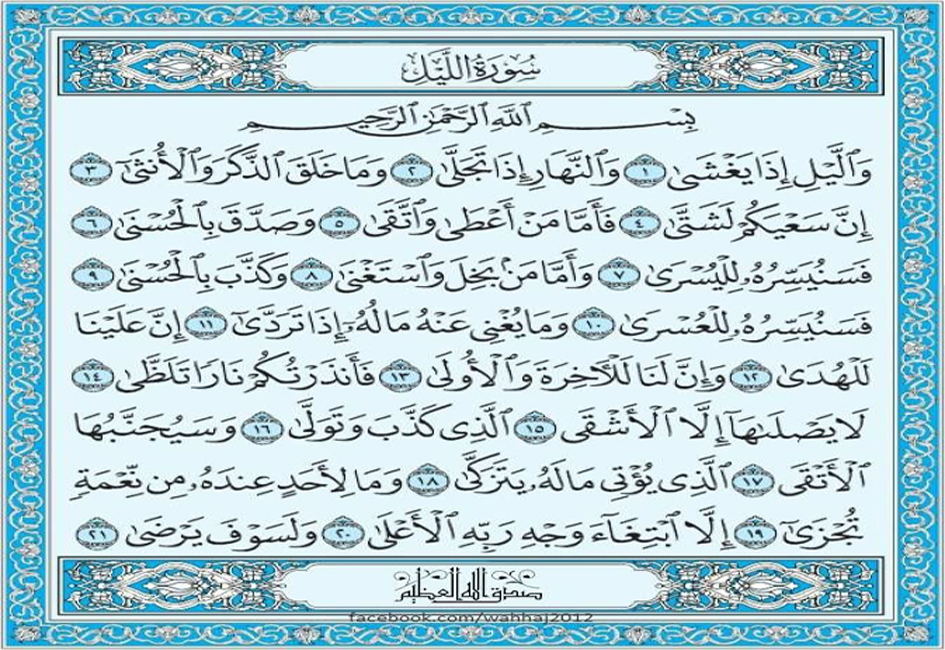 سُورَةُ اللَّيْلِ
بِسْمِ ٱللَّهِ ٱلرَّحْمَٰنِ ٱلرَّحِيمِ
وَٱلَّيْلِ إِذَا يَغْشَىٰ ١ وَٱلنَّهَارِ إِذَا تَجَلَّىٰ ٢ وَمَا خَلَقَ ٱلذَّكَرَ وَٱلْأُنثَىٰٓ ٣
إِنَّ سَعْيَكُمْ لَشَتَّىٰ ٤ فَأَمَّا مَنْ أَعْطَىٰ وَٱتَّقَىٰ ٥ وَصَدَّقَ بِٱلْحُسْنَىٰ ٦
فَسَنُيَسِّرُهُۥ لِلْيُسْرَىٰ ٧ وَأَمَّا مَنۢ بَخِلَ وَٱسْتَغْنَىٰ ٨ وَكَذَّبَ بِٱلْحُسْنَىٰ ٩
فَسَنُيَسِّرُهُۥ لِلْعُسْرَىٰ ١٠ وَمَا يُغْنِى عَنْهُ مَالُهُۥٓ إِذَا تَرَدَّىٰٓ ١١ إِنَّ عَلَيْنَا
لَلْهُدَىٰ ١٢ وَإِنَّ لَنَا لَلْءَاخِرَةَ وَٱلْأُولَىٰ ١٣ فَأَنذَرْتُكُمْ نَارًا تَلَظَّىٰ ١٤
لَا يَصْلَىٰهَآ إِلَّا ٱلْأَشْقَى ١٥ ٱلَّذِى كَذَّبَ وَتَوَلَّىٰ ١٦ وَسَيُجَنَّبُهَا
ٱلْأَتْقَى ١٧ ٱلَّذِى يُؤْتِى مَالَهُۥ يَتَزَكَّىٰ ١٨ وَمَا لِأَحَدٍ عِندَهُۥ مِن نِّعْمَةٍ
تُجْزَىٰٓ ١٩ إِلَّا ٱبْتِغَآءَ وَجْهِ رَبِّهِ ٱلْأَعْلَىٰ ٢٠ وَلَسَوْفَ يَرْضَىٰ ٢١
صدق الله العظيم
facebook.com/wahhaj2012